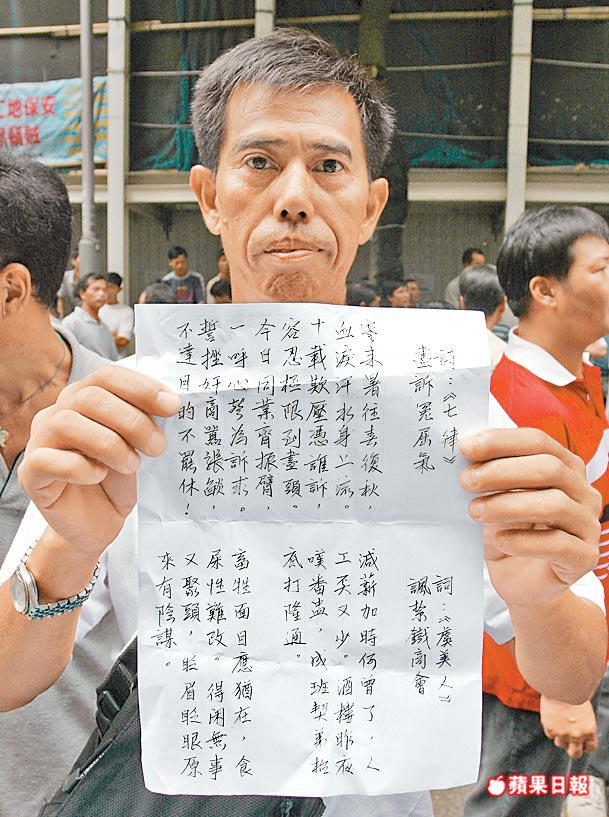 地保安
竊賊
詩：《七律》
盡訴冤屈氣
寒來暑往春復秋，
血淚汗水身上流。
十載欺壓憑誰訴，
容忍極限到盡頭。
今日同業齊振臂，
一呼心聲為訴求。
誓挫奸商囂張燄，
不達目的不罷休！
詞：《虞美人》
諷紮鐵商會
減薪加時何曾了，人
工奀又少。酒樓昨夜
嘆番盅，成班契弟抬
底打隆通。
畜牲面目應猶在，食
屎性難改。得閑無事
又聚頭，眨眉眨眼原
來有陰謀。
蘋果日報